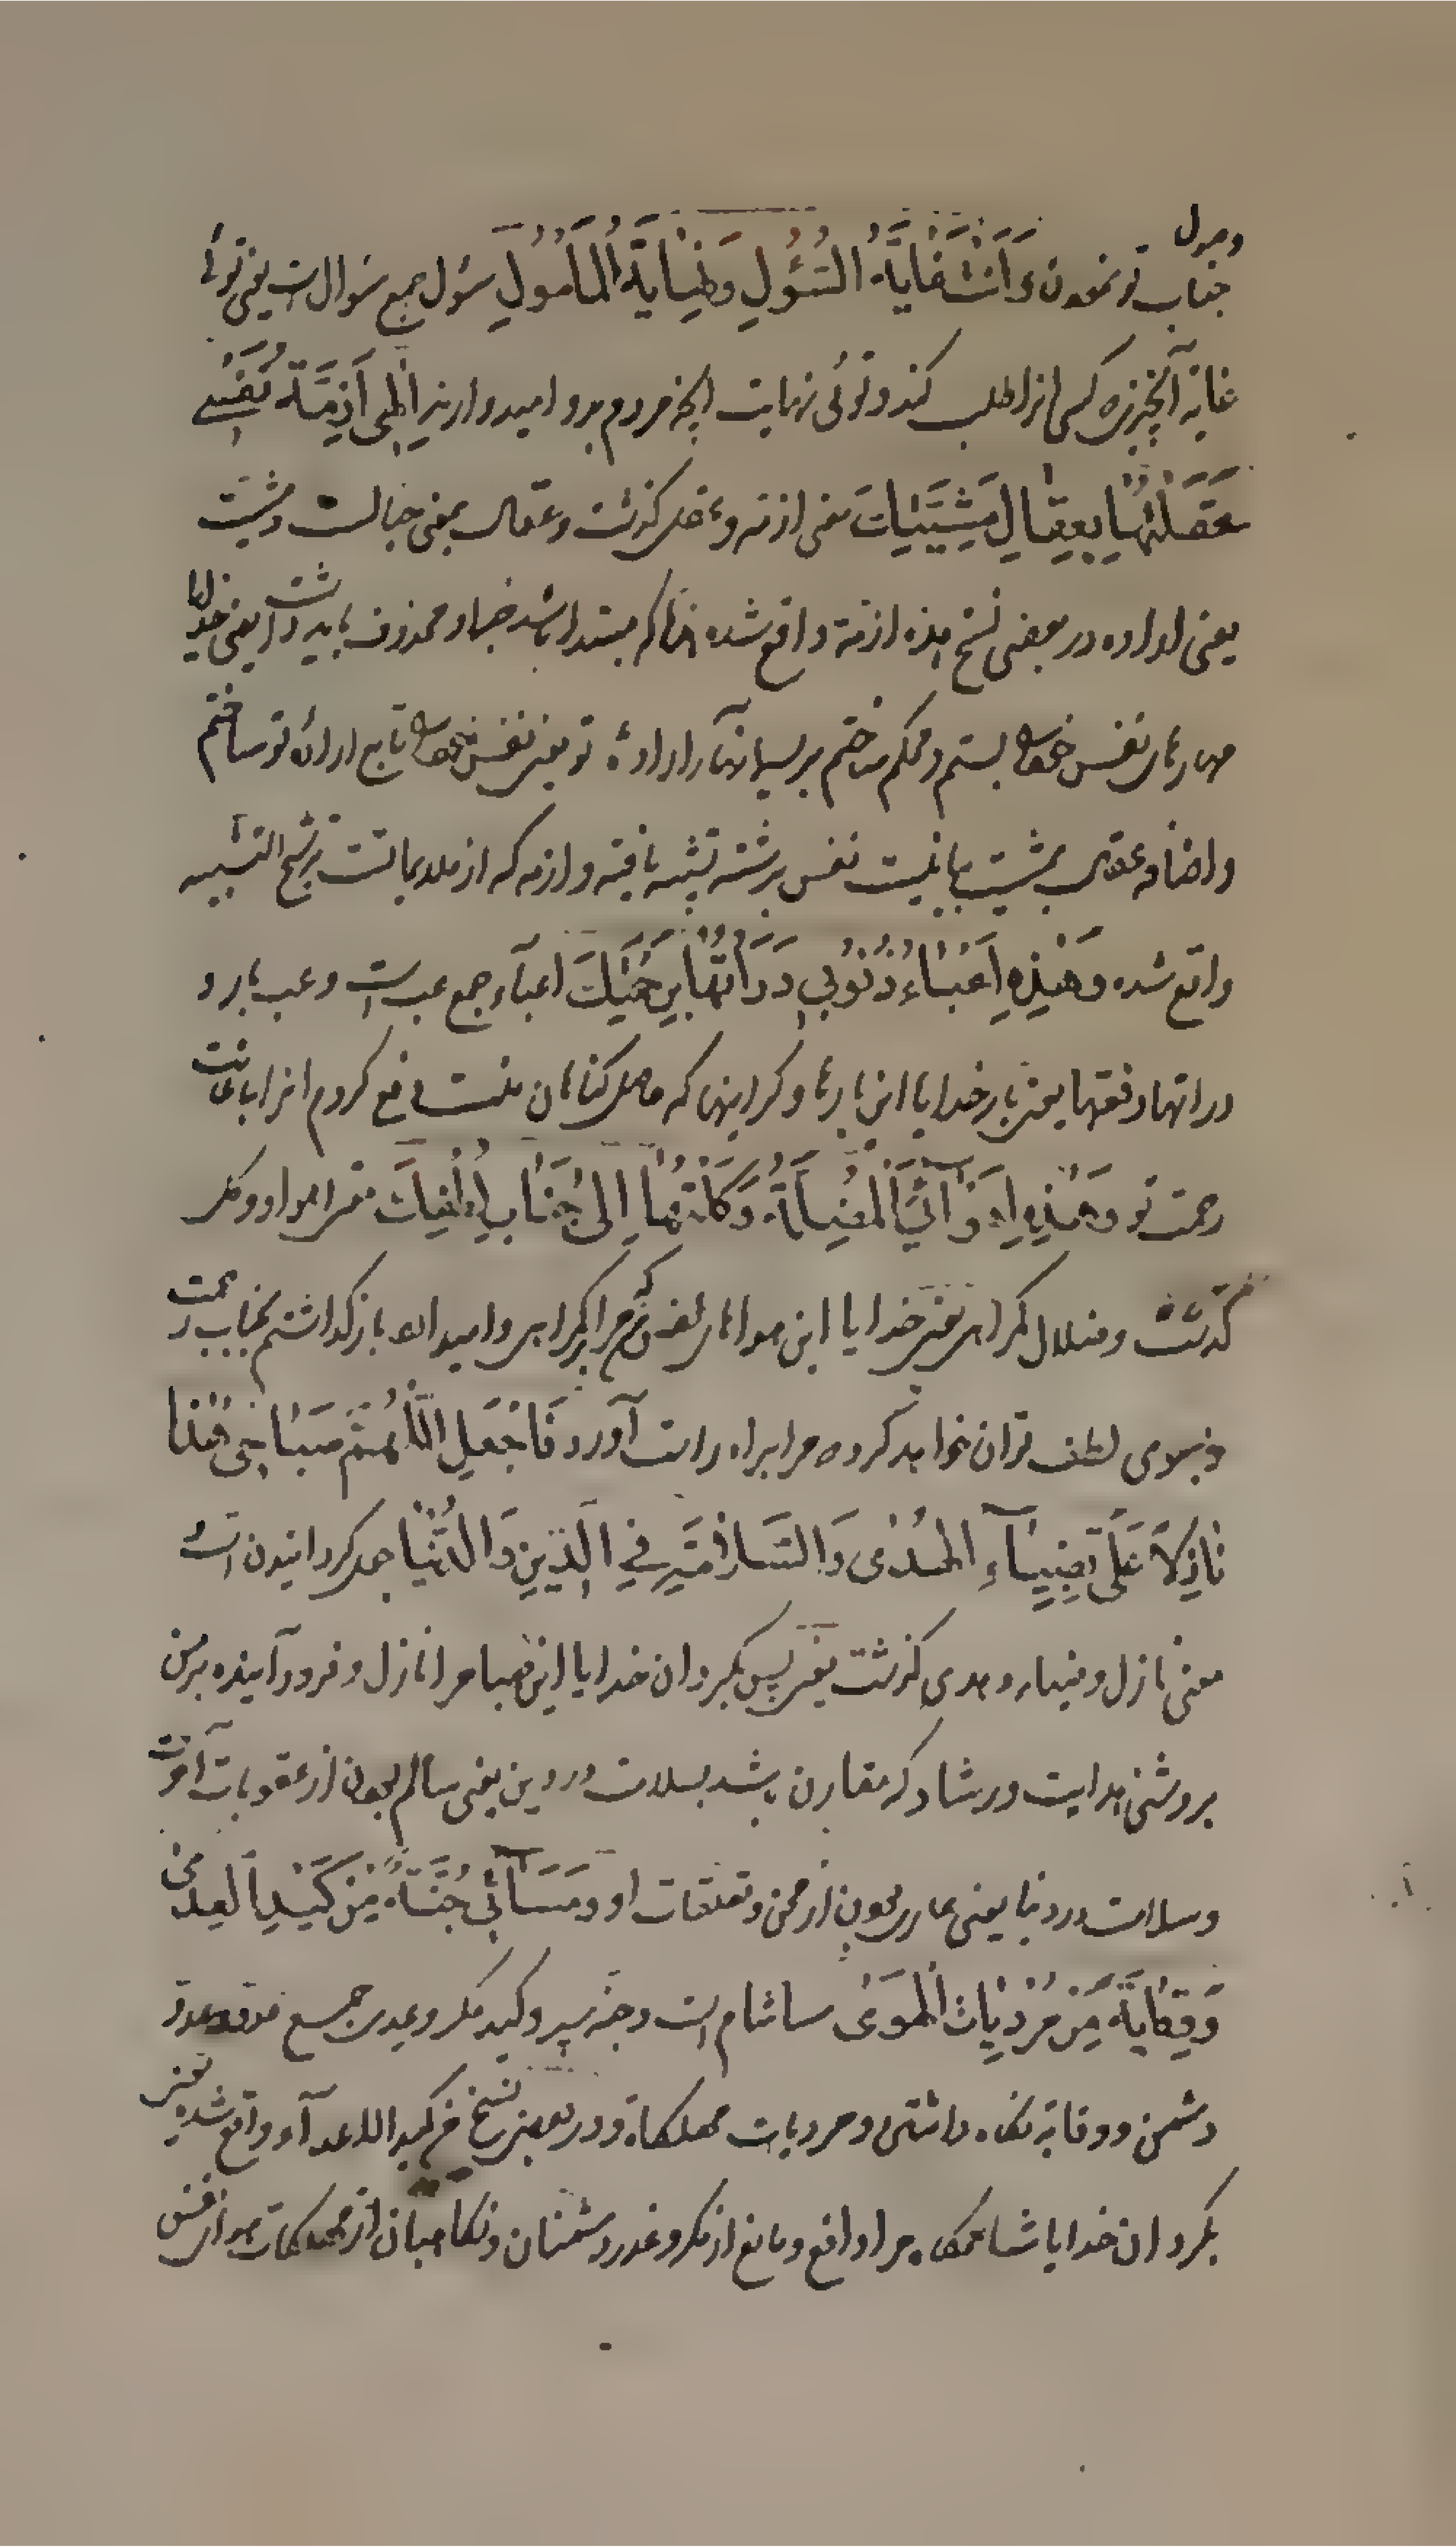 وصول
جناب تو نمودن وَأَنْتَ غَايَةُ السُّؤُلِ وَنِهَايَةُ الْمَأْمُولِ سؤل جمع سؤال است یعنی توئی
غایة آنچیزی که کسی انرا طلب کند و توئی نهایت انچه مردم بدو امیدوارند اِلٰهِی اَزِمَّةُ نَفْسِی
عَقَلْتُهَا بِعِقَالِ مَشِيَّتِكَ معنی ازمه و عقل گذشت و عقال بمعنی حبالست و مشیت
یعنی اراده در بعضی نسخ هذه ازمة واقع شده چنانکه مبتدا باشد خبر او محذوف باید داشت یعنی خدایا
مهارهای نفس خود را بستم و محکم ساختم بریسمانهآ را ارادۀ تو یعنی نفس خود را تابع ارادۀ تو ساختم
و اضافه عقال بمشیت بیانیست نفس برشته تشبیه یافته و ازمه که از ملایماتست ترشیح التشبیه
واقع شده وَهٰذِهِ اَعْبَاءُ ذُنُوبِی دَرَأْتُهَا بِرَحْمَتِكَ اعبآء جمع عبء است و عبء بار و
دراتها دفعتها یعنی بار خدایا این بارها و کرانیها که حاصل کناهان منست دفع کردم انرا باعانت
رحمت تو وَهٰذِهِ اَهْوَائِیَ الْمُضِلَّةُ وَكَلْتُهَا اِلىٰ جَنَابِ لُطْفِكَ معنی اهوا و وکل
گذشت و ضلال کمراهی یعنی خدایا این هواهای نفس که مرا کمراهی و امیداند بازگذاشتم بجناب رحمت
و بسوی لطف تو ان خواهد کرد و مرا براه راست آورد فَاجْعَلِ اللّٰهُمَّ صَبَاحِی هٰذَا
نَازِلًا عَلَیَّ بِضِيَاءِ الْهُدٰى وَالسَّلَامَةِ فِی الدِّينِ وَالدُّنْيَا جعل کردانیدن است و
معنی نازل و ضیاء و هدی گذشت یعنی پس بکردان خدایا این صباح مرا نازل و فرود آینده بر من
بروشنی هدایت و رشاد که مقارن باشد بسلامت در دین یعنی سالم بودن از عقوبات آخرت
و سلامت در دنیا یعنی عاری بودن از محن و تعلقات او وَمَسَائِی جُنَّةً مِنْ كَيْدِ الْعِدٰى
وَوِقَايَةً مِنْ مُرْدِيَاتِ الْهَوٰى مسا شام است و جنّه سپر و کید مکر و عدی جمع عدو و عدو
دشمن و وقایة نکاه داشتن و مردیات مهلکات و در بعضی نسخ من کید الاعدآء واقع شده یعنی
بکردان خدایا شامکاه مرا دافع و مانع از مکر و غدر دشمنان و نکاهبان از مهلکات هوای نفس